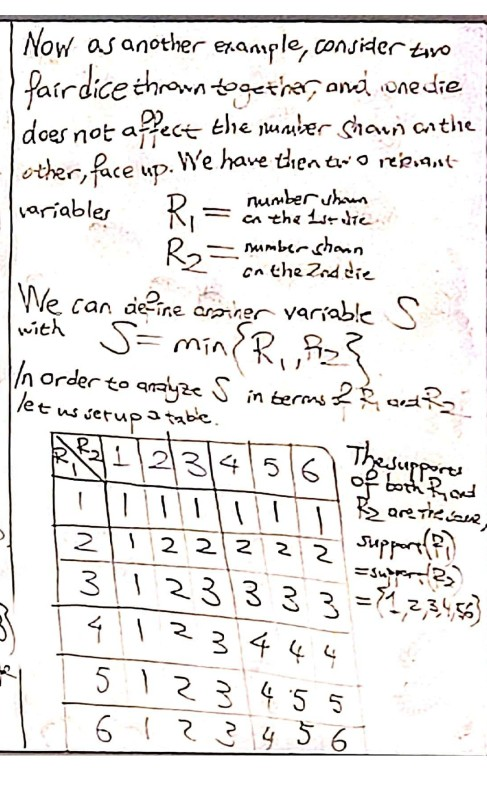 Now as another example, consider two
fair dice thrown together, and one die
does not affect the number shown on the
other, face up. We have then two relevant
variables R₁ = number shown on the 1st die
R₂ = number shown on the 2nd die
We can define another variable S
with S = min{R₁, R₂}
In order to analyze S in terms of R₁ and R₂
let us set up a table.
R₁ R₂ 1 2 3 4 5 6
1 1 1 1 1 1 1
2 1 2 2 2 2 2
3 1 2 3 3 3 3
4 1 2 3 4 4 4
5 1 2 3 4 5 5
6 1 2 3 4 5 6
The supports
of both R₁ and
R₂ are the same,
support(R₁)
=support(R₂)
={1,2,3,4,5,6}